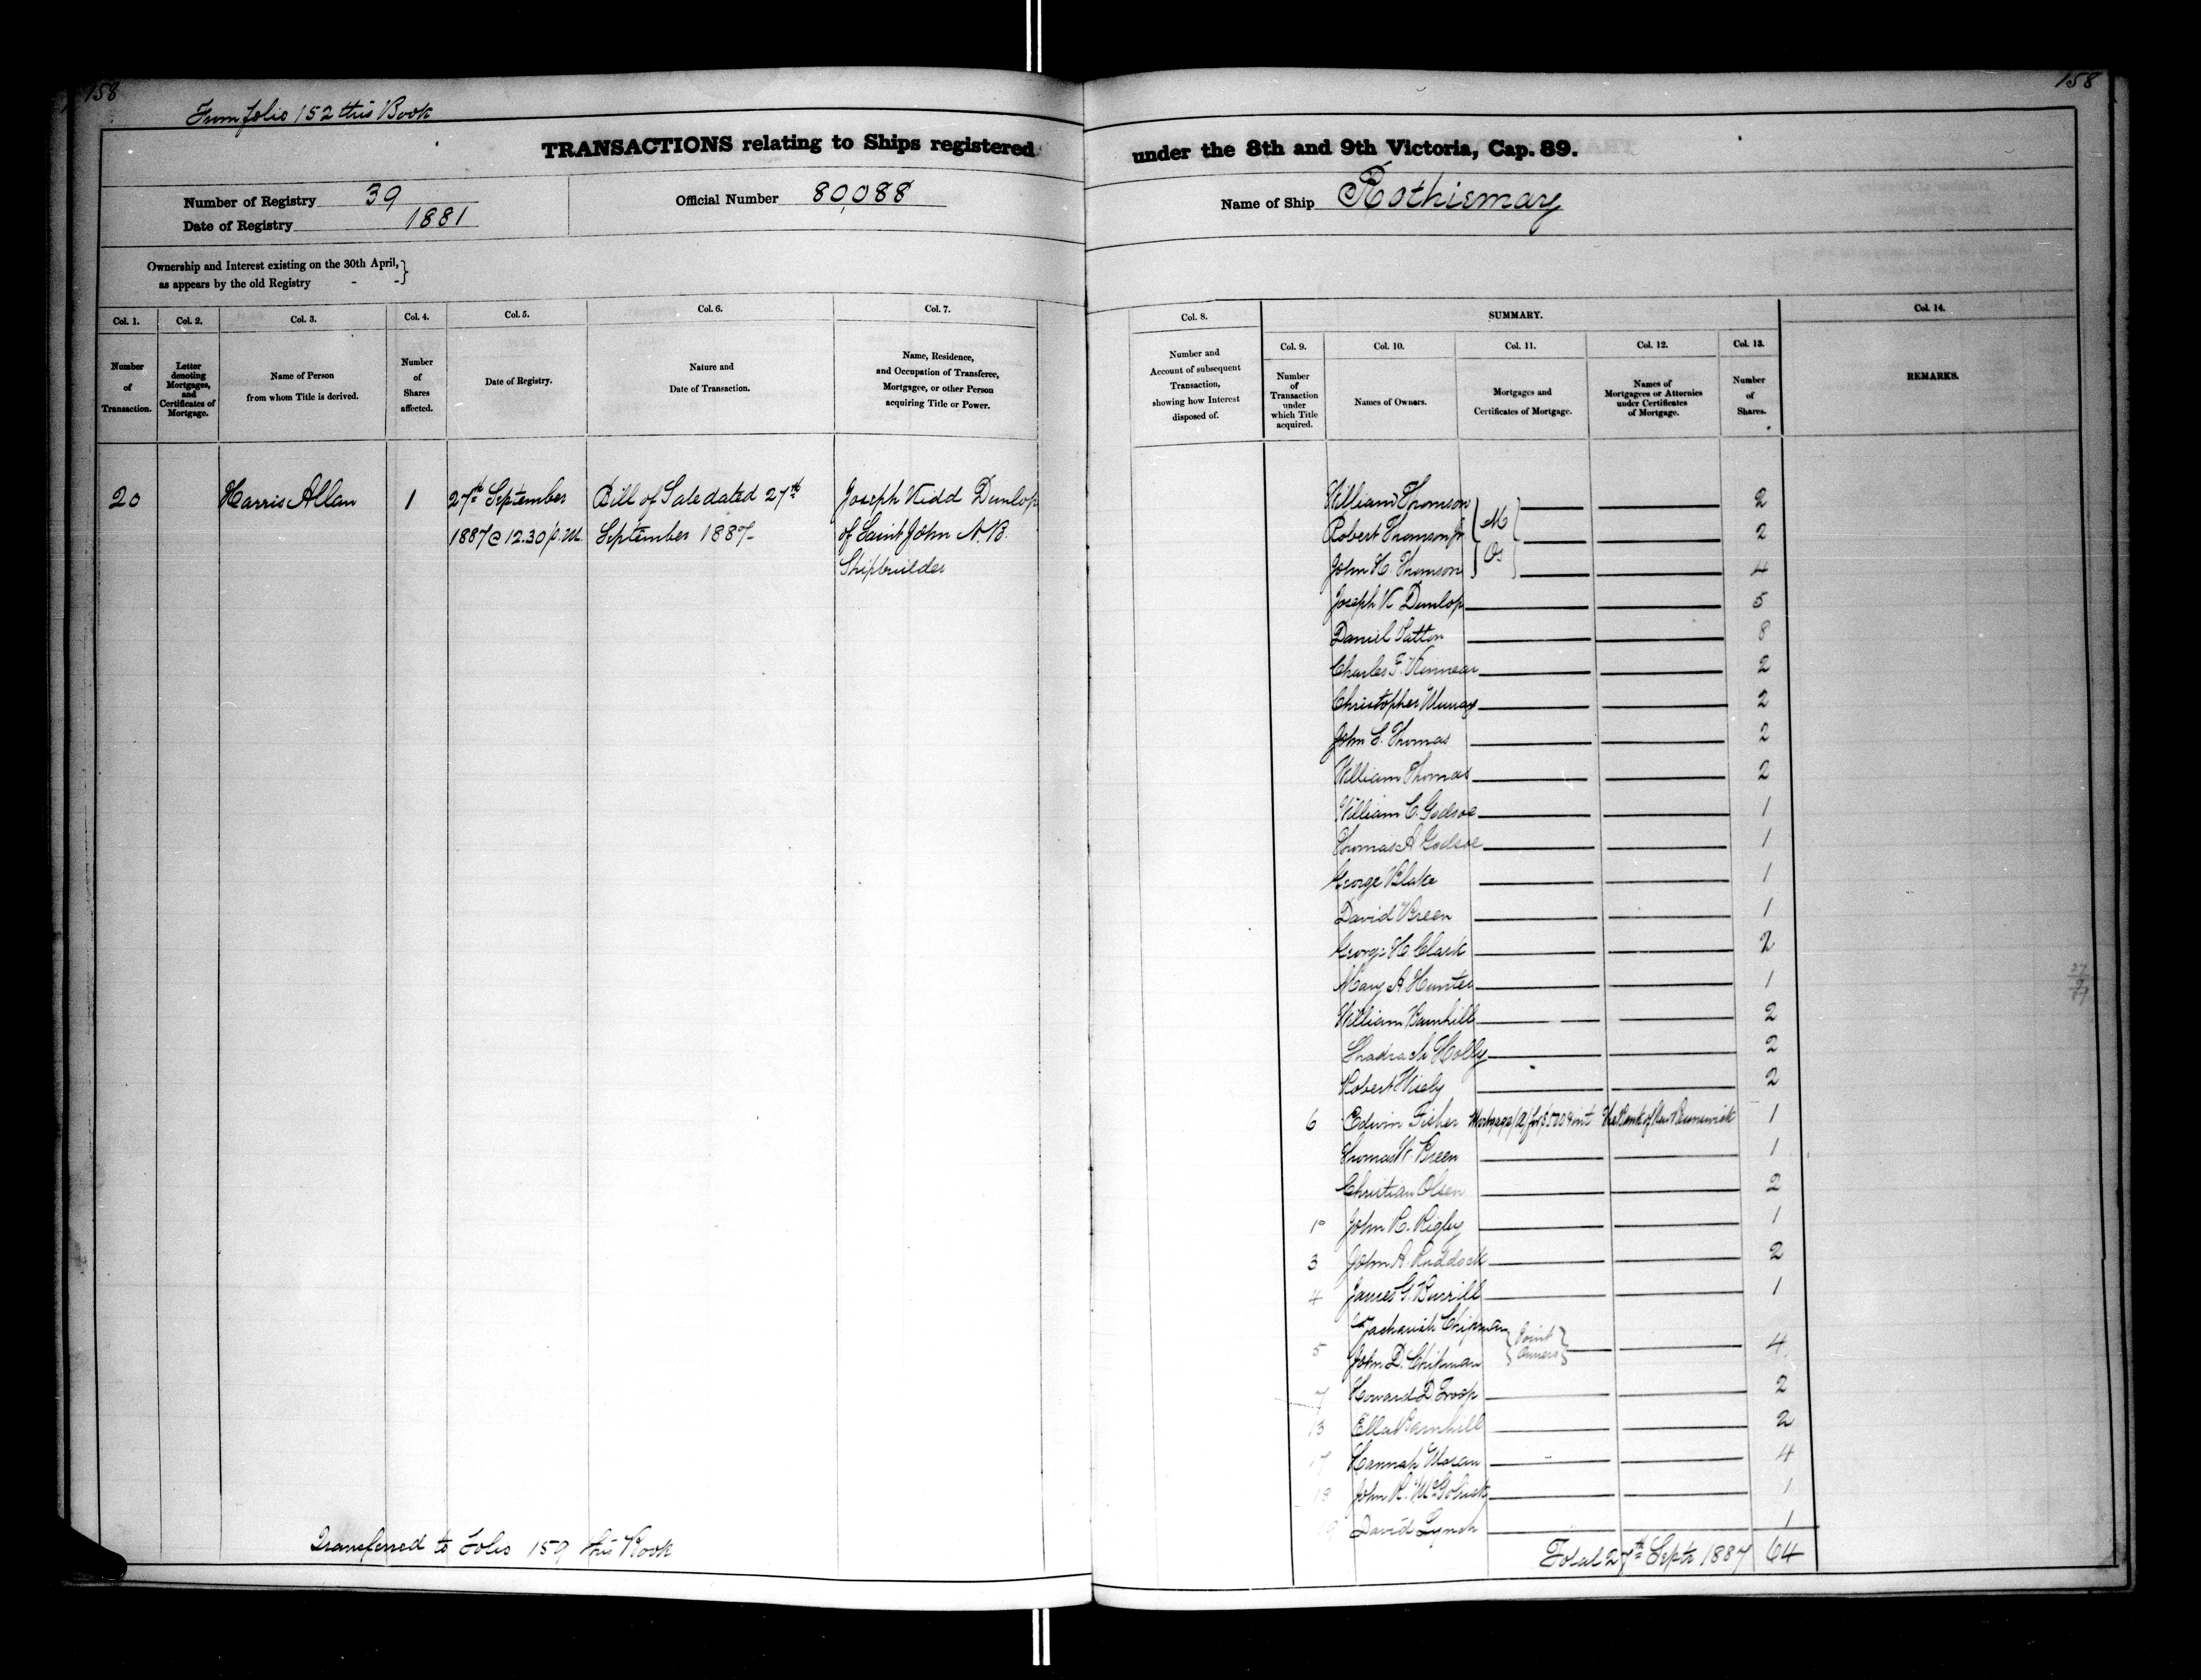 158
From folio 152 this Book
TRANSACTIONS relating to Ships registered
Number of Registry 39
Date of Registry 1881
Official Number 80,088
Ownership and Interest existing on the 30th April, }
as appears by the old Registry - - }
Col. 1.
Number
of
Transaction.
Col. 2.
Letter
denoting
Mortgages,
and
Certificates of
Mortgage.
Col. 3.
Name of Person
from whom Title is derived.
Col. 4.
Number
of
Shares
affected.
Col. 5.
Date of Registry.
Col. 6.
Nature and
Date of Transaction.
Col. 7.
Name, Residence,
and Occupation of Transferee,
Mortgagee, or other Person
acquiring Title or Power.
20 Harris Allan 1 27th September Bill of Sale dated 27th Joseph Kidd Dunlop
1887 @ 12.30 p.m. September 1887- of Saint John N.B.
Shipbuilder
Transferred to Folio 159 this Book
158
under the 8th and 9th Victoria, Cap. 89.
Name of Ship Rothiemay
Col. 8.
Number and
Account of subsequent
Transaction,
showing how Interest
disposed of.
SUMMARY.
Col. 9.
Number
of
Transaction
under
which Title
acquired.
Col. 10.
Names of Owners.
Col. 11.
Mortgages and
Certificates of Mortgage.
Col. 12.
Names of
Mortgagees or Attornies
under Certificates
of Mortgage.
Col. 13.
Number
of
Shares.
Col. 14.
REMARKS.
William Thomson 2
Robert Thomson Jr M 2
John H. Thomson Os 4
Joseph K Dunlop 5
Daniel Patton 8
Charles F. Kinnear 2
Christopher Murray 2
John E. Thomas 2
William Thomas 2
William C. Godsoe 1
Thomas A Godsoe 1
George Blake 1
David Breen 1
George H. Clark 2
Mary A Hunter 1
William Barnhill 2
Shadrach Holly 2
Robert Wisely 2
6 Edwin Fisher Mortgage (A) for $500 & int The Bank of New Brunswick 1
Thomas W. Breen 1
Christian Olsen 2
1 John R. Rigby 1
3 John A. Ruddock 2
4 James G. Burrill 1
Zachariah Chipman } Joint
5 John D. Chipman } Owners 4
7 Howard D. Troop 2
13 Ella Barnhill 2
17 Hannah Moran 4
18 John R. 1
19 David Lynch 1
Total 27th Septr 1887 64